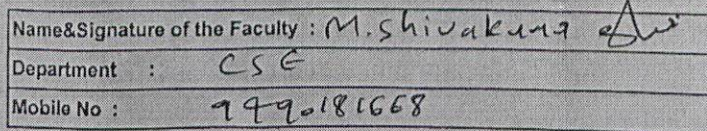 Name&Signature of the Faculty : M.Shivakuma
Department : CSE
Mobile No : 9490181668